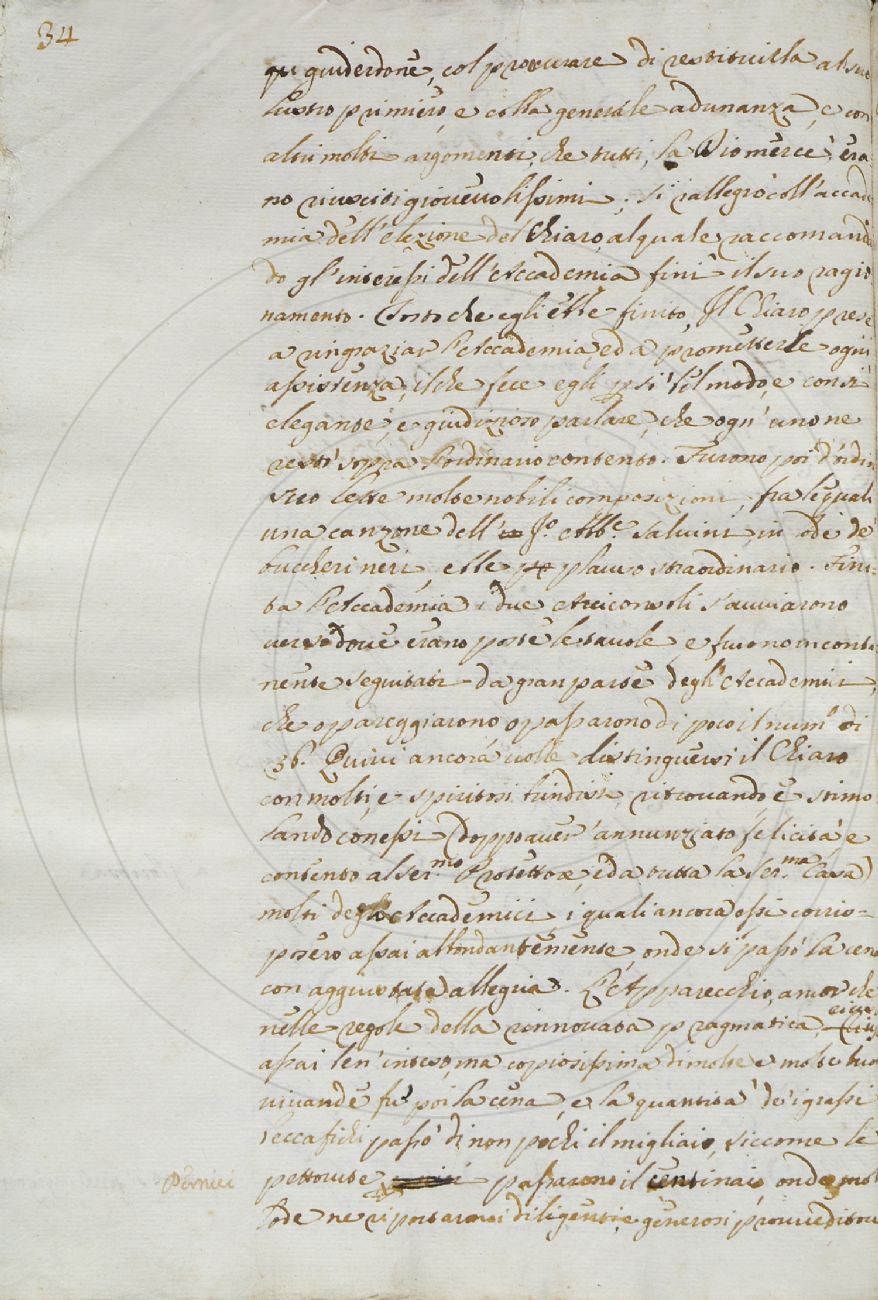 34
guiderdone, col procurare di restituilla al suo
lustro primiero, e colla generale adunanza, e con
altri molti argomenti, che tutti, la Dio mercè, era
no riusciti giovevolissimi; si rallegrò coll'accade
mia dell'elezione del Chiaro, al quale raccomandan
do gl'interessi dell'Accademia finì il suo ragio
namento. Tosto che egli ebbe finito, Il Chiaro prese
a ringraziar l'Accademia, ed a prometterle ogni
assistenza, il che fece egli p sì bel modo, e con sì
elegante, e giudizioso parlare, che ogn'uno ne
restò sopra l'ordinario contento. Furono poi d'ordin
suo lette molte nobili composizioni, fra le quali
una canzone dell' Ab.e Salvini, in ode de
buccheri neri, e lle plauso straordinario. Fini
ta l'Accademia i due Arciconsoli s'avviarono
verso dove erano poste le tavole e furono inconti
nente seguitati da gran parte degl'Accademici,
che o pareggiarono, o passarono di poco il num.o di
36. Quivi ancora volle distinguersi il Chiaro
con molti, e spiritosi brindisi, ritrovando e stimo
lando con essi (doppo aver annunziato felicità e
contento al Ser.mo Protettore, ed a tutta la Ser.ma Casa)
molti degli Accademici, i quali ancora essi corris=
posero assai abbondantemente, onde si passò la cena
con aggiustata allegria. L'Apparecchio, ancor che
nelle regole della rinnovata pragmatica,
assai ben inteso, ma copiosissima di molte e molte buon
vivande fu poi la cena, e la quantità de' i grassi
beccafichi passò di non pochi il migliaio, siccome le
Pernici
pettorute passarono il centinaio, onde mol
lode ne riportarono i diligenti, e generosi provveditori